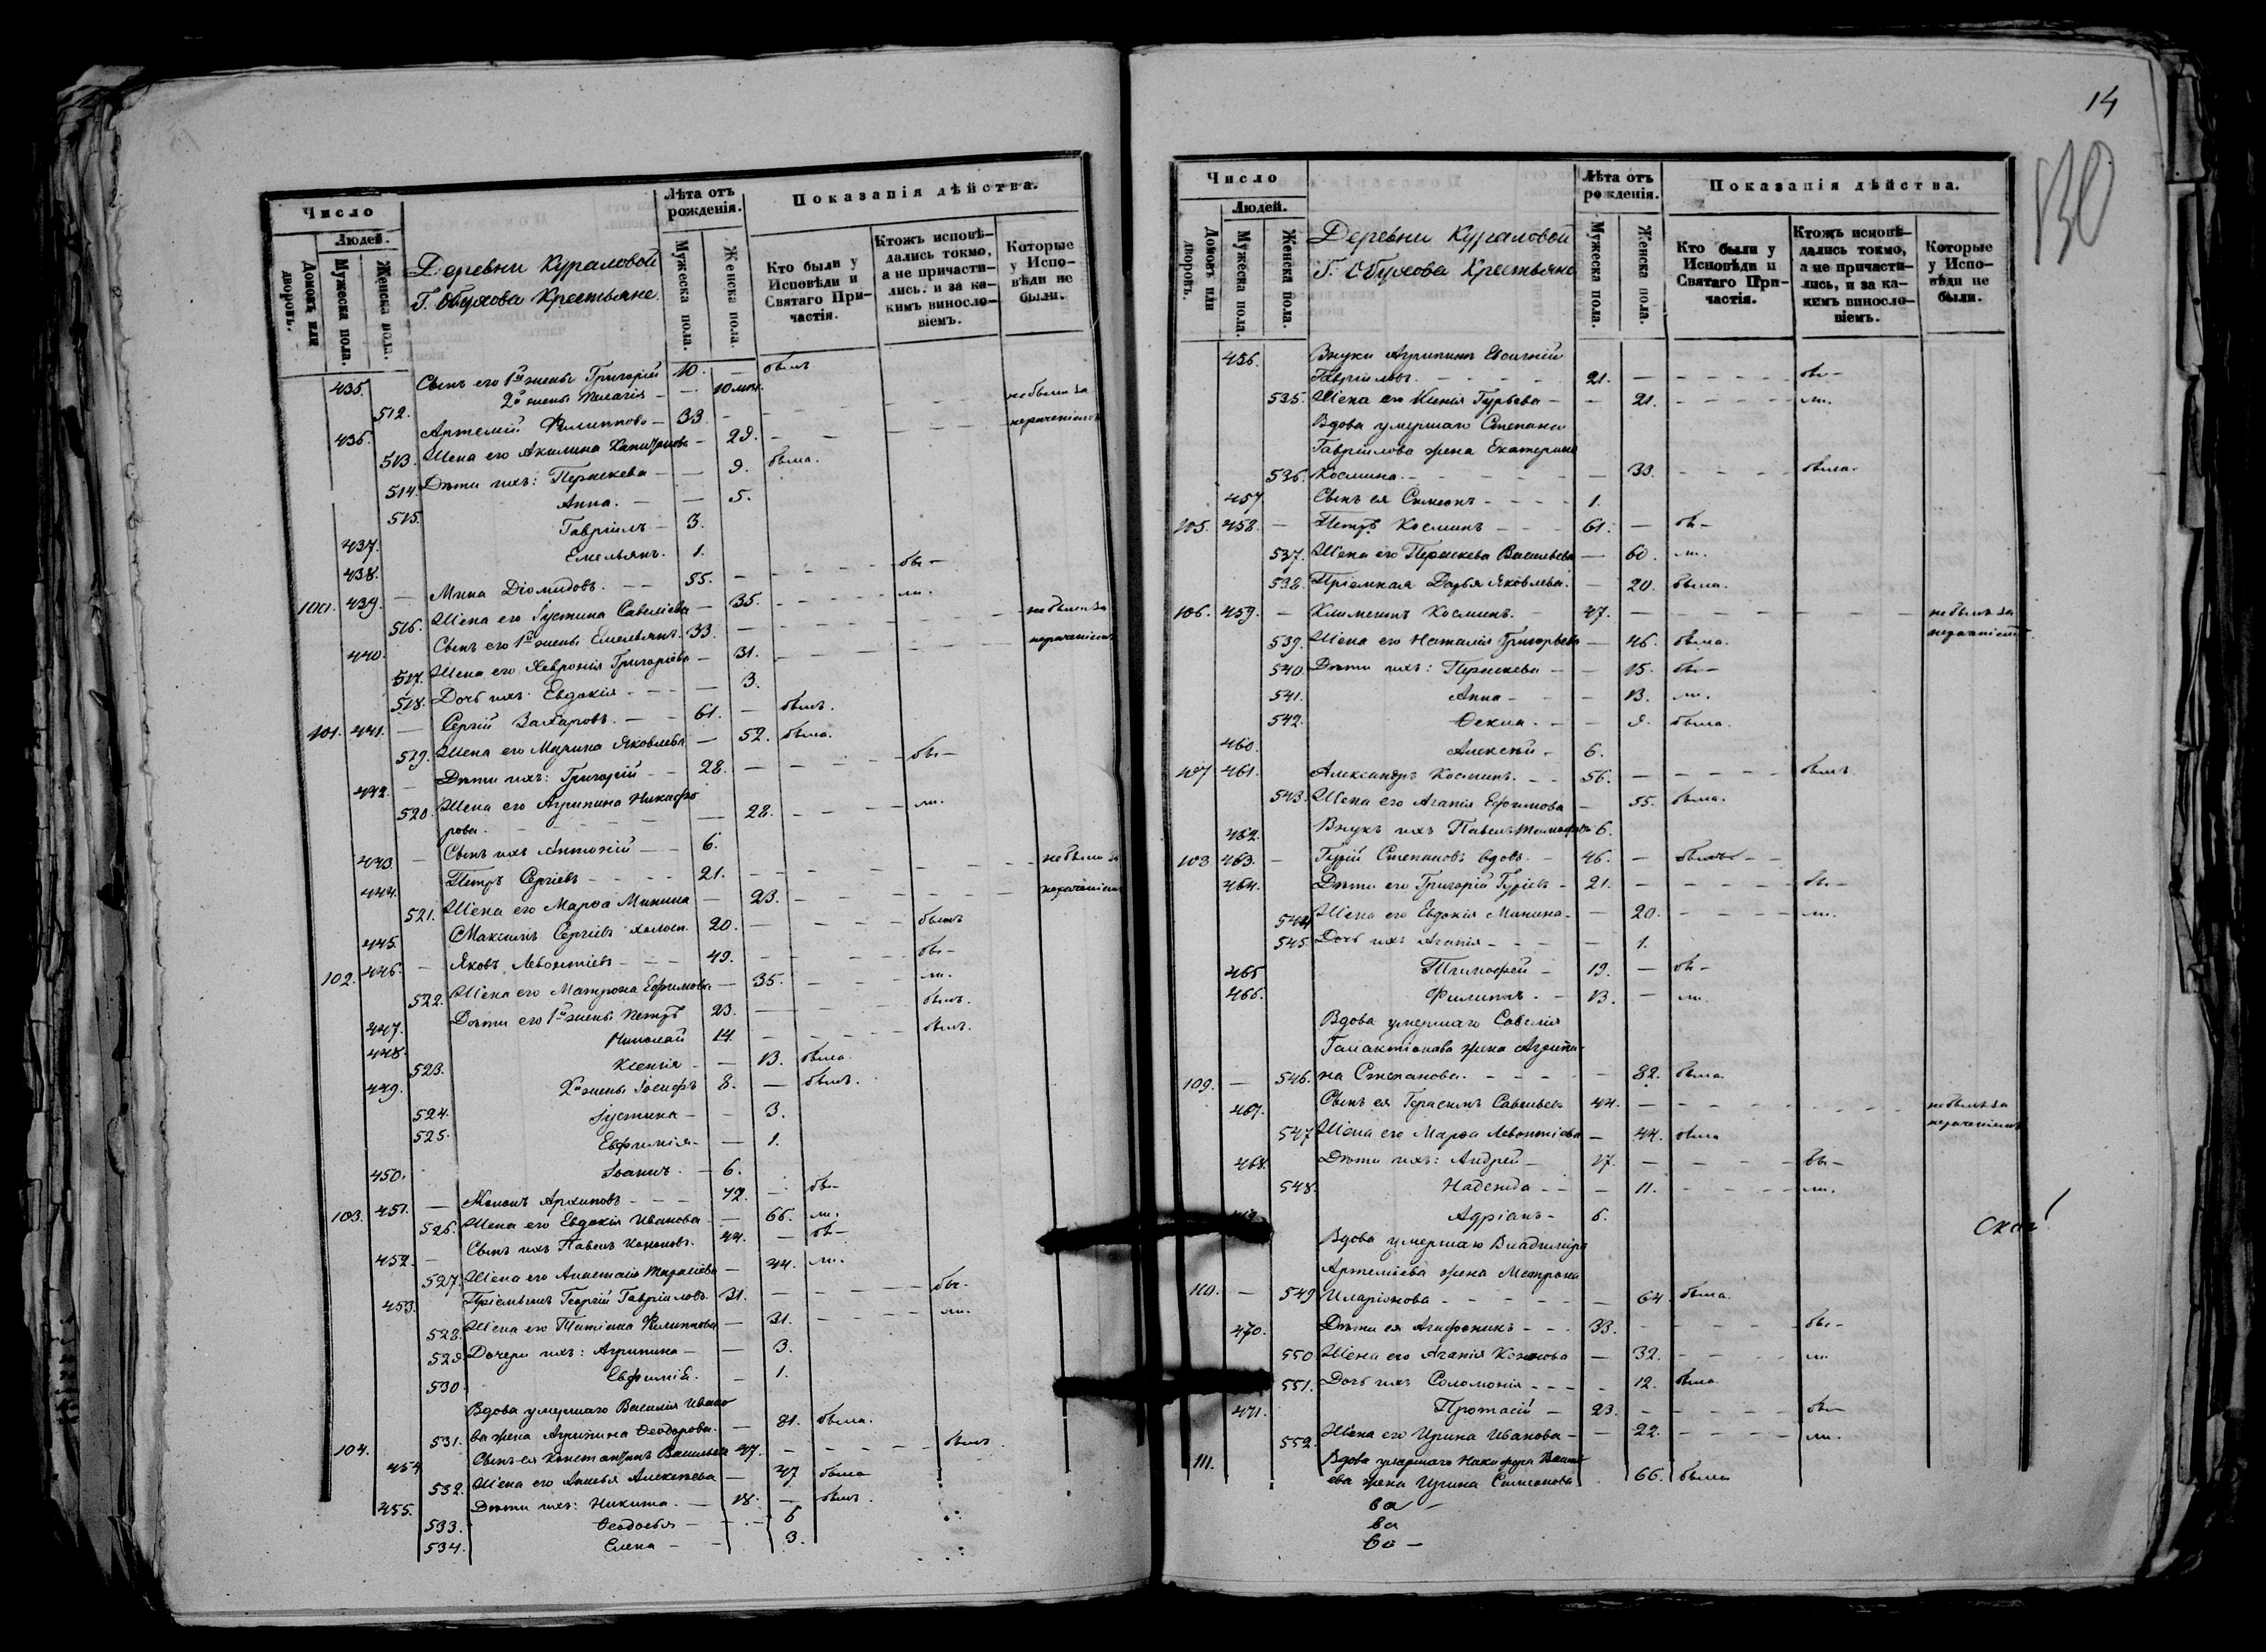 Число
Людей.
Домовъ или дворовъ.
Мужеска пола.
Женска пола.
Деревни Кураловой
Г. Обухова Крестьяне.
Лѣта отъ рожденія.
Мужеска пола.
Женска пола.
Показанія дѣйства.
Кто были у Исповѣди и Святаго Причастія.
Ктожъ исповѣдались токмо, а не причастились, и за какимъ винословіемъ.
Которые у Исповѣди не были.
435. Сынъ его 1й жены Григорій 10. — былъ
512. 2й жены Пелагія — 10 мѣс.
436. Артемій Филиповъ — 33. — небыли за
513. Жена его Акилина — 29. — нераченіемъ
514. Дѣти ихъ: Параскева — — 9. была.
515. Анна. — — 5.
437. Гавріилъ — 3.
438. Емельянъ. 1.
100. 439. — Мина Діомидовъ. — — 55. — бы —
516. Жена его Іустина Савеліева — 35. ли.
440. Сынъ его 1й жены Емельянъ. 33. — небыли за
517. Жена его Хавронія Григоріева — 31. нераченіемъ
518. Дочь ихъ Евдокія — — — 3.
101. 441. — Сергій Захаровъ. — — 61. — былъ.
519. Жена его Марина Яковлева — 52. была.
442. — Дѣти ихъ: Григорій — — 28. — бы —
520. Жена его Агрипина Никифо
рова. — 28. ли.
443. — Сынъ ихъ Антоній — — 6.
444. Петръ Сергіевъ — — — 21. — небыли за
521. Жена его Марѳа Минина — 23. нераченіемъ
445. Максимъ Сергіевъ холост. 20. — былъ
102. 446. — Яковъ Леонтіевъ — — — 49. — бы —
522. Жена его Матрона Ефимова — 35. ли.
447. Дѣти его 1й жены Петръ 23. — былъ.
448. Николай 14. — былъ.
523. Ксенія — — 13. была.
449. 2й жены Іосифъ 8. — былъ.
524. Іустина — — 3.
525. Евфимія — — 1.
450. Іоаннъ. — 6.
103. 451. — Кононъ Архиповъ — — — 72. — бы —
526. Жена его Евдокія Иванова — — 66. ли.
452. — Сынъ ихъ Павелъ Кононовъ. 44. — бы —
527. Жена его Анастасія Тарасіева — 44. ли.
453. Пріемышъ Георгій Гавріиловъ. 31. — бы —
528. Жена его Татіана Филиппова — 31. ли.
529. Дочери ихъ: Агрипина — — 3.
530. Евфимія. — 1.
Вдова умершаго Василія Ивано
104. 531. ва жена Агрипина Ѳеодорова. — 81. была.
454. Сынъ ея Константинъ Васильевъ 47. — былъ.
532. Жена его Алексѣева — 47 была
455. Дѣти ихъ: Никита. — 18. — былъ.
533. Ѳеодосья — — 6
534. Елена — — 3.
14
Число
Людей.
Домовъ или дворовъ.
Мужеска пола.
Женска пола.
Деревни Кураловой
Г. Обухова Крестьяне
Лѣта отъ рожденія.
Мужеска пола.
Женска пола.
Показанія дѣйства.
Кто были у Исповѣди и Святаго Причастія.
Ктожъ исповѣдались токмо, а не причастились, и за какимъ винословіемъ.
Которые у Исповѣди не были.
456. Внуки Агрипины
Гавріиловъ. — 21. — бы —
535. Жена его Ксенія Гурьева — — 21. ли.
Вдова умершаго Степана
Гавріилова жена Екатерина
536. Космина. — — 33. была.
457. Сынъ ея Симеонъ — — — 1.
105. 458. — Петръ Косминъ — — — 61. — бы —
537. Жена его Параскева Васильева — 60. ли.
538. Пріемная Дарья Яковлева. — 20. была.
106. 459. — Климентъ Косминъ. 47. — небылъ за
539. Жена его Наталія Григорьева — 46. была. нераченіемъ
540. Дѣти ихъ: Параскева — — 15. бы —
541. Анна — — 13. ли.
542. Ѳекла. — — 9. была.
460. Алексѣй — 6.
107 461. Александръ Косминъ. — — 56. — былъ.
543. Жена его Агапія Ефимова — 55. была.
462. Внукъ ихъ Павелъ 6.
108 463. — Гурій Степановъ вдовъ. — 46. — былъ
464. Дѣти его Григорій Гуріевъ — 21. — бы —
544. Жена его Евдокія Минина — — 20. ли.
545. Дочь ихъ Агапія — — — 1.
465 Тимофей — 19. — бы —
466. Филиппъ. — 13. — ли.
Вдова умершаго Савелія
Галактіонова жена Агрипи-
109. — 546. на Степанова. — — 82. была.
467. Сынъ ея Герасимъ Савельевъ 44. — небылъ за
547 Жена его Марѳа Леонтіева — 44. была нераченіемъ
468. Дѣти ихъ: Андрей — 17. — бы —
548. Надежда — — 11. ли.
Адріанъ — 6.
Вдова умершаго Владиміра
Артеміева жена Матрона
110. — 549 Иларіонова — — 64. была.
470. Дѣти ея Агафоникъ — — 33. — бы —
550 Жена его Агапія Кононова — 32. ли.
551. Дочь ихъ Соломонія — — — 12. была.
471. Протасій — 23. — бы —
552. Жена его Ирина Иванова — — 22. ли.
111. Вдова умершаго Никифора
ева жена Ирина Симеонова 66. была
ва —
ва
ва —